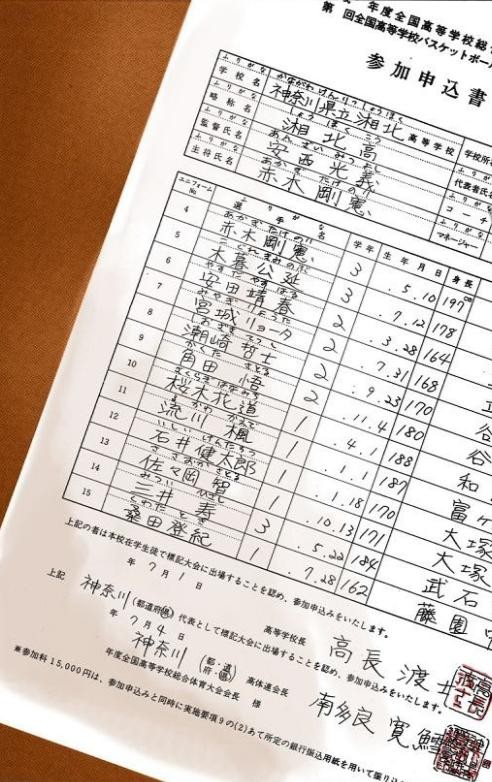 年度全国高等学校総
第 回全国高等学校バスケットボー
参加申込書
ふりがな かながわけんりつしょうほく
学校名 神奈川県立湘北 高等学校 学校所
ふりがな しょうほくこう
略称名 湘北高 代表者氏
ふりがな あんざいみつよし ふりがな
監督氏名 安西光義 コーチ
ふりがな あかぎたけのり ふりがな
主将氏名 赤木剛憲 マネージャー
ユニフォームNo 選手名 ふりがな 学年 生年月日 身長
あかぎたけのり
4 赤木剛憲 3 .5.10 197cm
こぐれきみのぶ
5 木暮公延 3 .7.12 178
やすだやすはる
6 安田靖春 2 .3.28 164
みやぎりょうた
7 宮城リョータ 2 .7.31 168
しおざきてつし
8 潮崎哲士 2 .9.23 170
かくたさとる
9 角田悟 2 .11.4 180
さくらぎはなみち
10 桜木花道 1 .4.1 188
るかわかえで
11 流川楓 1 .1.1 187
いしいけんたろう
12 石井健太郎 1 .1.18 170
ささおかさとる
13 佐々岡智 1 .10.13 171
みついひさし
14 三井寿 3 .5.22 184
くわたとき
15 桑田登紀 1 .7.28 162
谷
谷
和
富ヶ
大塚
大塚
武石
藤園
上記の者は本校在学生徒で標記大会に出場することを認め、参加申込みをいたします。
年 7月 1日
高等学校長 高長 渡井
上記 神奈川(都道府県)代表として標記大会に出場することを認め、参加申込みをいたします。
年 7月 4日
神奈川(都・道 府・県) 高体連会長 南多良 寛
年度全国高等学校総合体育大会会長 様
※参加料15,000円は、参加申込みと同時に実施要項9の(2)あて所定の銀行振込用紙を用いて振り込